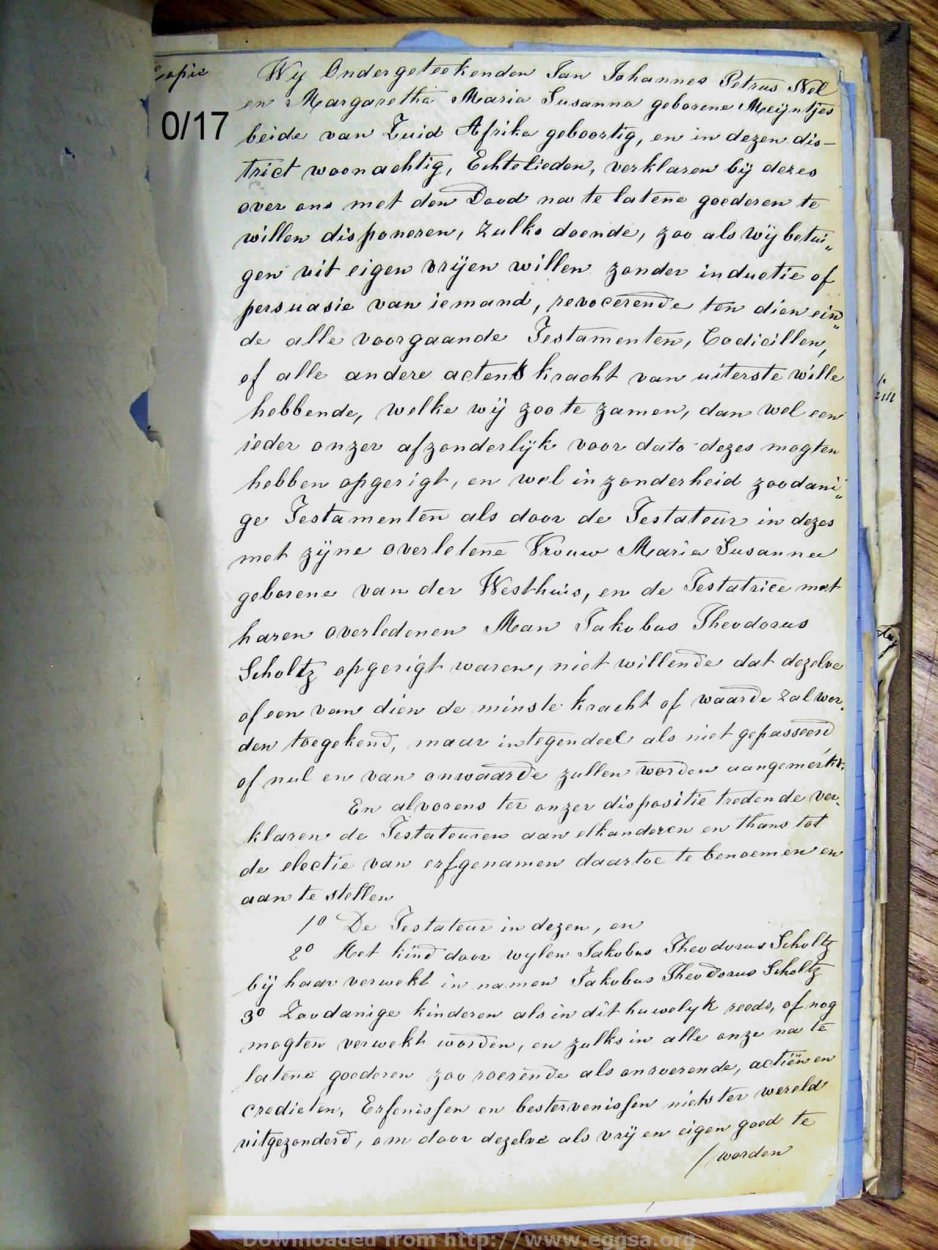 Copie
0/17
Wy Ondergeteekenden Jan Johannes Petrus Nel
en Margaretha Maria Susanna geborene Meijntjes
beide van Zuid Afrika geboortig, en in dezen dis-
trict woonachtig, Echtelieden, verklaren bij deres
over ons met den Dood na te latene goederen te
willen disponeren, Zulks doende, zoo als wij betui„
gen uit eigen vrijen willen zonder inductie of
persuasie van iemand, revocerende ten dien ein„
de alle voorgaande Testamenten, Codicillen,
of alle andere acten kracht van uiterste wille
hebbende, welke wij zoo te zamen, dan wel een
ieder onzer afzonderlijk voor dato dezes mogten
hebben opgerigt, en wel inzonderheid zoodani„
ge Testamenten als door de Testateur in dezes
met zijne overletene Vrouw Maria Susanna
geborene van der Westhuis, en de Testatrice met
haren overledenen Man Jakobus Theodorus
Scholtz opgerigt waren, niet willende dat dezelve
of een van dien de minste kracht of waarde zal wor„
den toegekend, maar integendeel als niet gepasseerd
of nul en van onwaarde zullen worden aangemerkt.
En alvorens ter onzer dispositie tredende ver„
klaren de Testateuren aan elkanderen en thans tot
de electie van erfgenamen daartoe te benoemen en
aan te stellen
1o De Testateur in dezen, en
2o Het kind door wylen Jakobus Theodorus Scholtz
bij haar verwekt in namen Jakobus Theodorus Scholtz
3o Zoodanige kinderen als in dit huwelyk reeds, of nog
mogten verwekt worden, en zulks in alle onze na te
latene goederen zoo roerende als onroerende, actiën en
credieten, Erfenissen en bestervenissen niets ter wereld
uitgezonderd, om door dezelve als vrij en eigen goed te
/ worden
Downloaded from http://www.eggsa.org